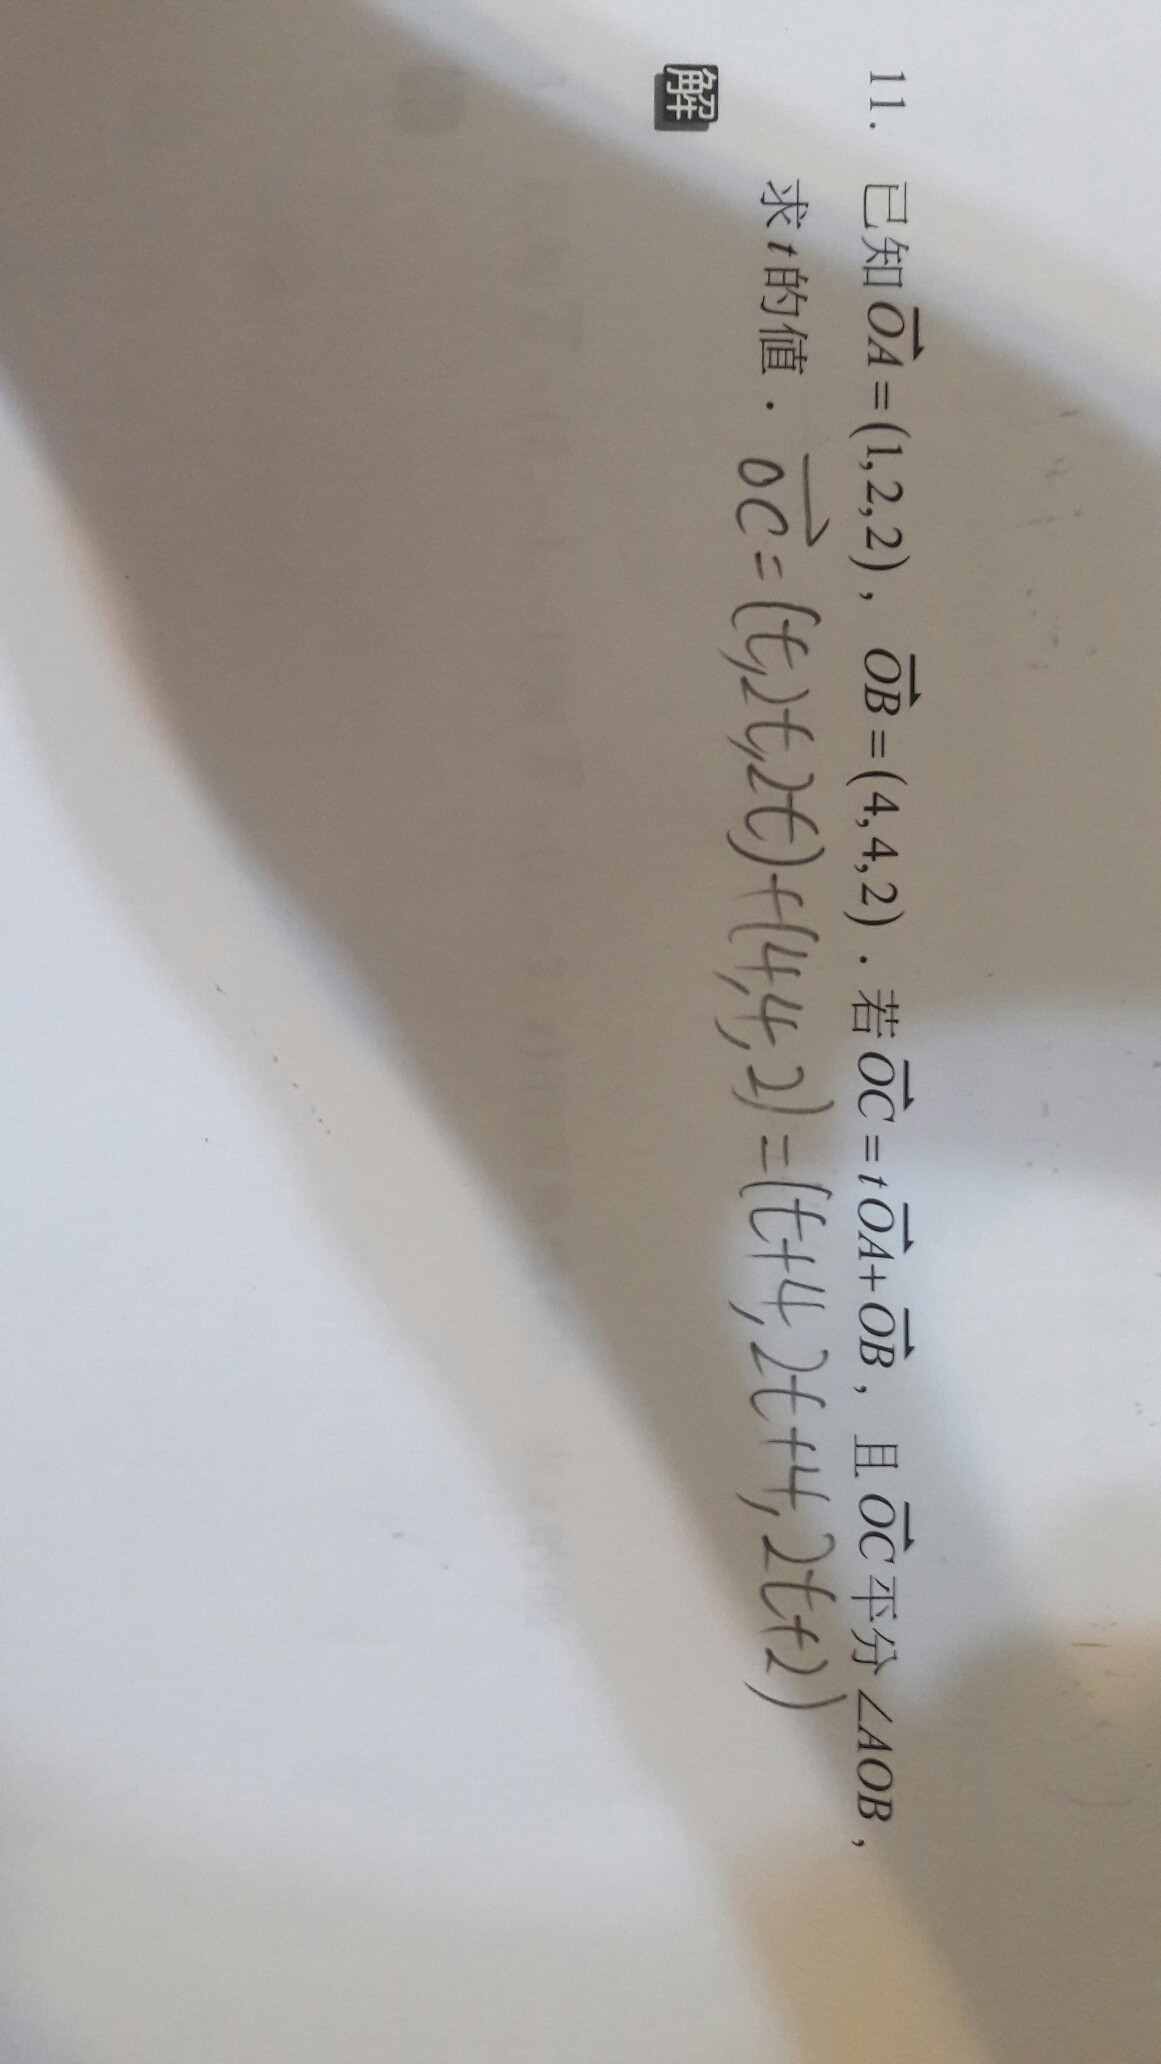 11. 已知 $\overrightarrow{OA}=(1,2,2)$，$\overrightarrow{OB}=(4,4,2)$．若 $\overrightarrow{OC}=t\overrightarrow{OA}+\overrightarrow{OB}$，且 $\overrightarrow{OC}$ 平分 ∠AOB，
求 t 的值． $\overrightarrow{OC}=(t,2t,2t)+(4,4,2)=(t+4,2t+4,2t+2)$
解